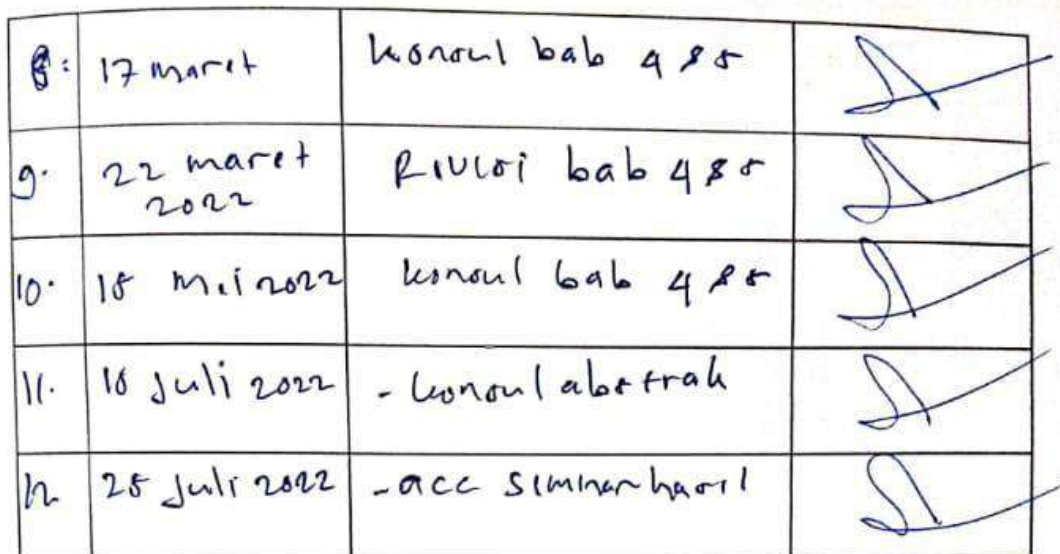 8. 17 maret konsul bab 4 & 5
9. 22 maret Revisi bab 4 & 5
2022
10. 15 mei 2022 konsul bab 4 & 5
11. juli 2022 - konsul abstrak
12 25 juli 2022 - acc seminar hasil